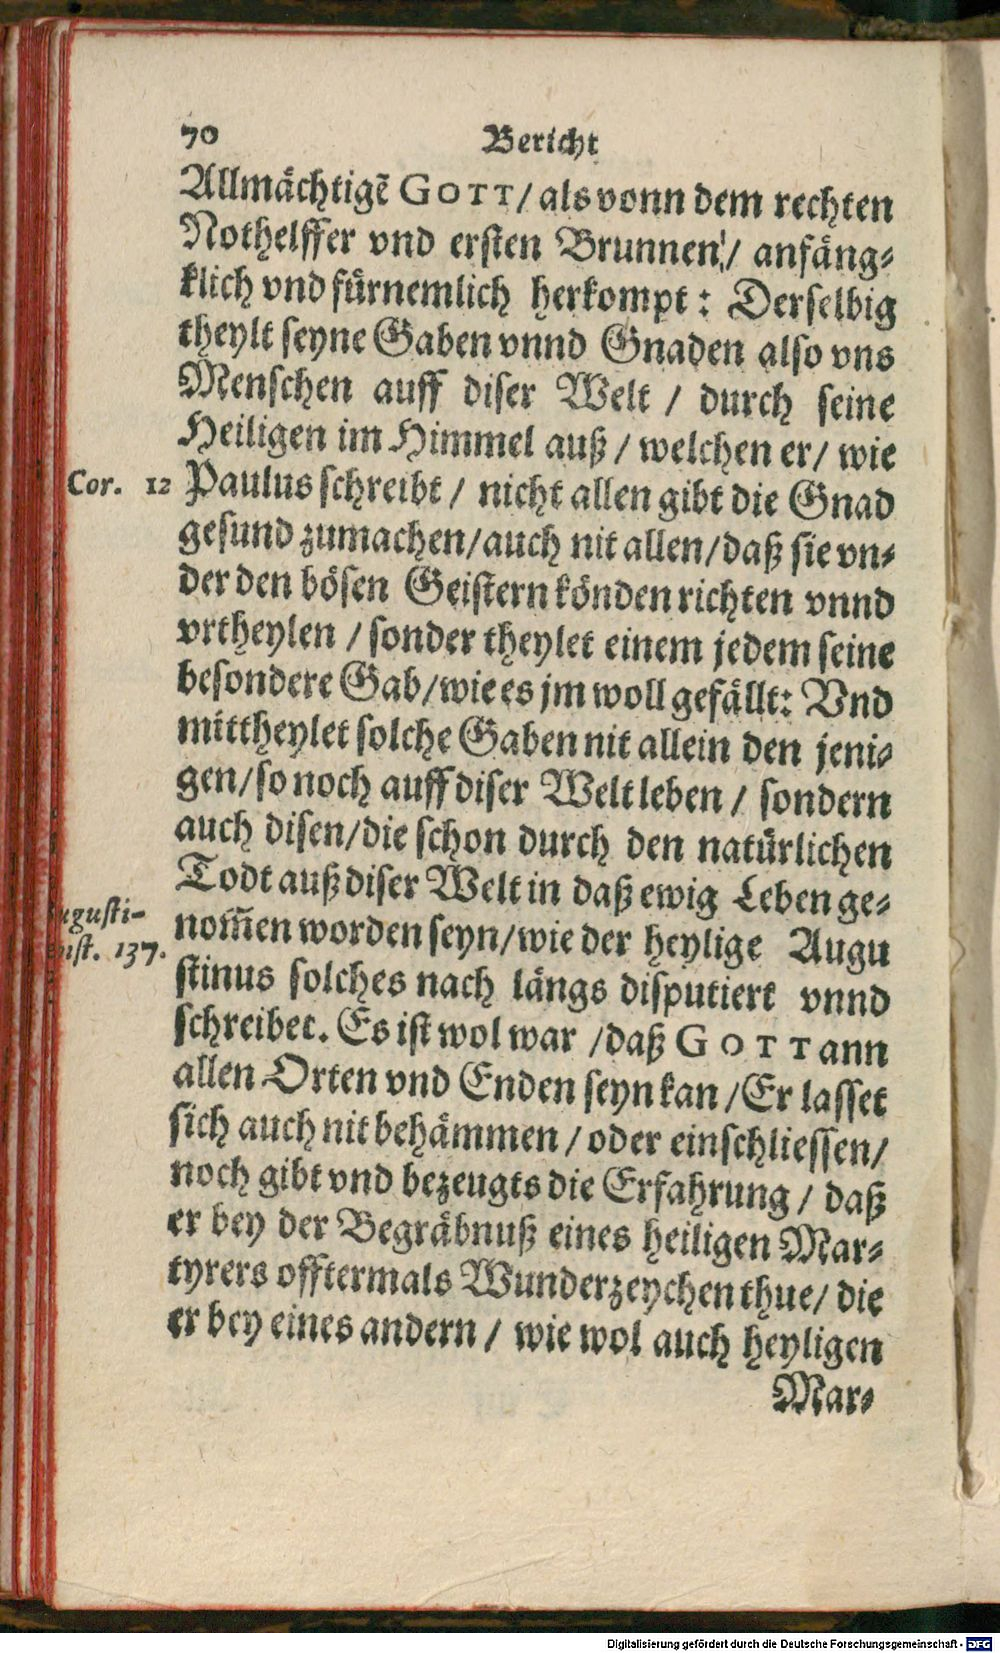 70 Bericht
Allmächtigē GOTT/ als vonn dem rechten
Nothelffer vnd ersten Brunnen/ anfäng-
klich vnd fürnemlich herkompt: Derselbig
theylt seyne Gaben vnnd Gnaden also vns
Menschen auff diser Welt / durch seine
Heiligen im Himmel auß / welchen er/ wie
Cor. 12 Paulus schreibt / nicht allen gibt die Gnad
gesund zumachen/auch nit allen/daß sie vn-
der den bösen Geistern könden richten vnnd
vrtheylen / sonder theylet einem jedem seine
besondere Gab/wie es jm woll gefällt: Vnd
mittheylet solche Gaben nit allein den jeni-
gen/so noch auff diser Welt leben / sondern
auch disen/die schon durch den natürlichen
Todt auß diser Welt in daß ewig Leben ge-
ugusti-
nom̃en worden seyn/wie der heylige Augu
ist. 137.
stinus solches nach längs disputiert vnnd
schreibet. Es ist wol war /daß GOTT ann
allen Orten vnd Enden seyn kan /Er lasset
sich auch nit behämmen / oder einschliessen/
noch gibt vnd bezeugts die Erfahrung / daß
er bey der Begräbnuß eines heiligen Mar-
tyrers offtermals Wunderzeychen thue/ die
er bey eines andern / wie wol auch heyligen
Mar-
Digitalisierung gefördert durch die Deutsche Forschungsgemeinschaft - DFG